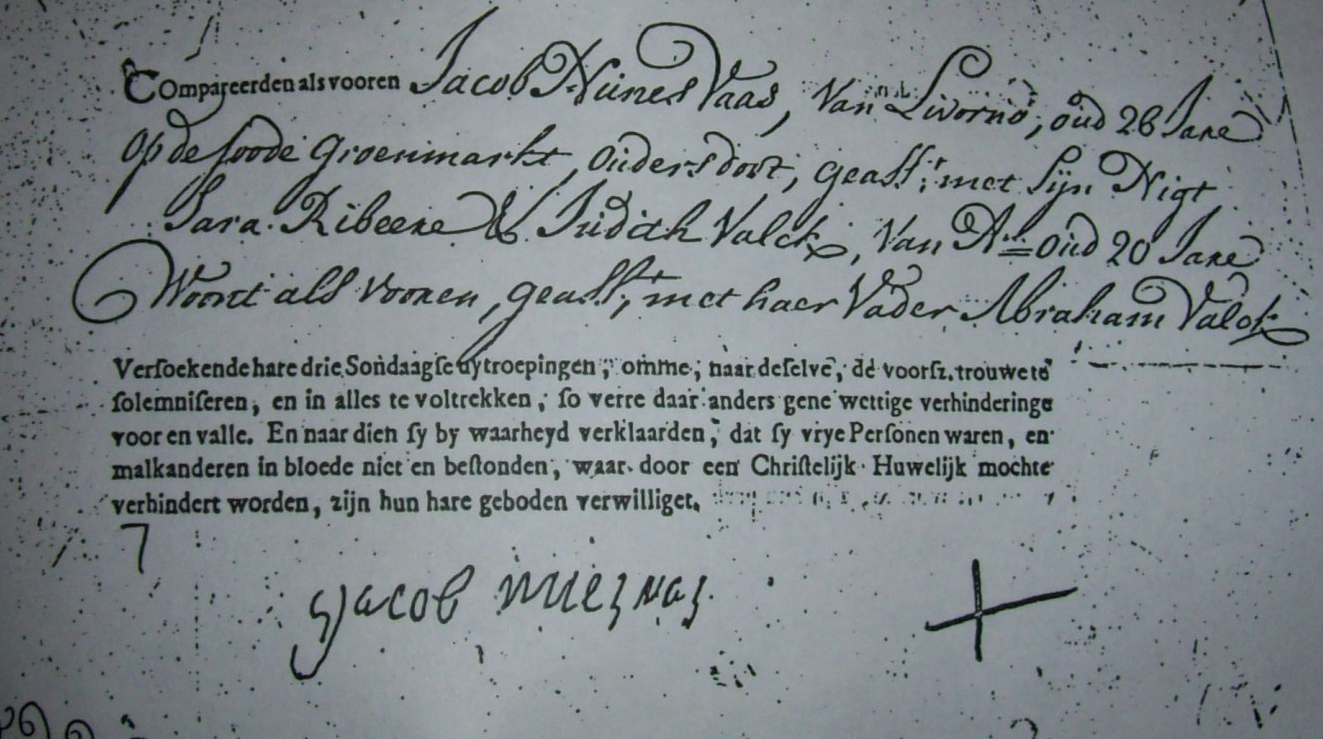 Compareerden als vooren Jacob Nunes Vaas, Van Livorno, oud 26 Jare
Op de Joode Groenmarkt, Ouders doot, geasst. met Sijn Nigt
Sara Ribeere & Judith Valck, Van A. oud 20 Jare
Woont als vooren, geasst, met haer Vader Abraham Valck
Verſoekende hare drie Sondaagſe uytroepingen, omme, naar deſelve, de voorſz. trouwe te
ſolemniſeren, en in alles te voltrekken, ſo verre daar anders gene wettige verhinderinge
voor en valle. En naar dien ſy by waarheyd verklaarden, dat ſy vrye Perſonen waren, en
malkanderen in bloede niet en beſtonden, waar door een Chriſtelijk Huwelijk mochte
verhindert worden, zijn hun hare geboden verwilliget.
Jacob nunes vas